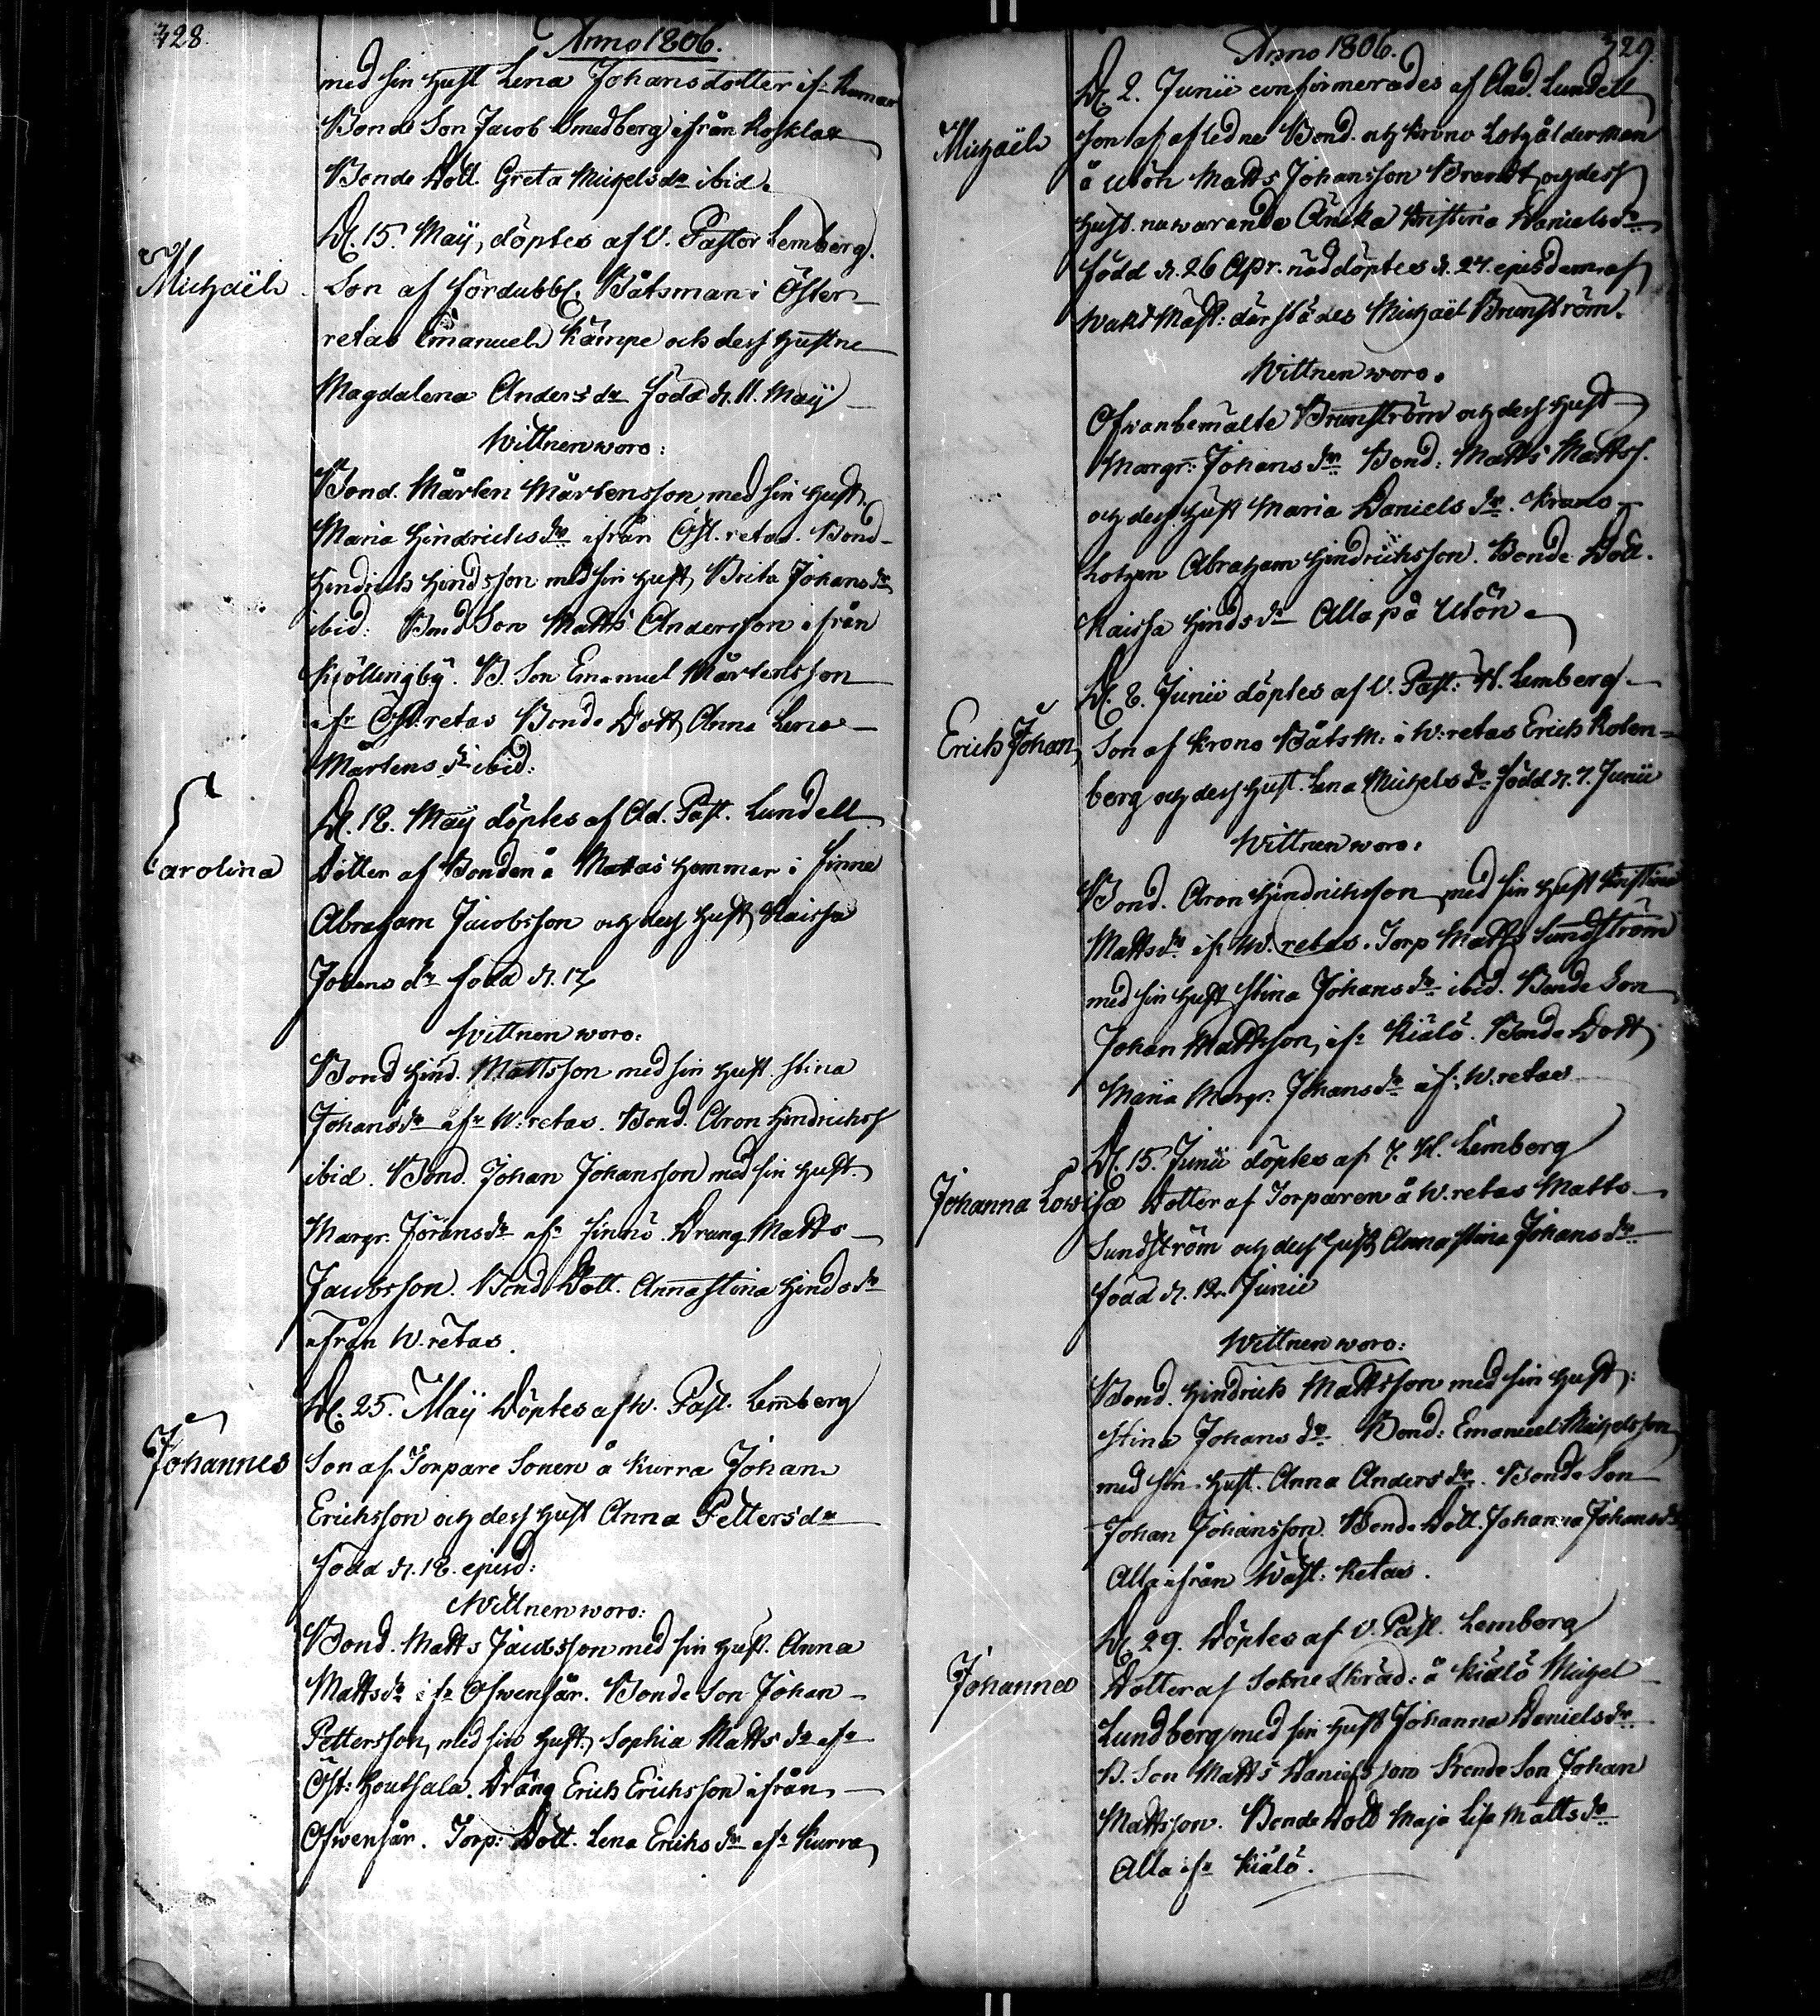 328.
Anno 1806.
med sin hust Lena Johansdotter ifr Ramar
Bonde Son Jacob Smedberg ifrån Rosklax
Bonde Dott. Greta Michelsdr ibid.
D. 15. Maÿ, döptes af V. Pastor Lemberg.
Michaël
Son af fördubbl. Båtsman i Öster-
retas Emanuel Kämpe och dess hustru
Magdalena Andersdr född d. 11. Maÿ
Wittnen woro:
Bond. Mårten Mårtensson med sin hust.
Maria Hindrichsdr ifrån Öst. retas. Bond-
Hindrich Hindsson med sin hust, Brita Johansdr
ibid: Bond Son Matts Andersson ifrån
Kjöllingbÿ. B. Son Emanuel Mårtensson
ifr Öst.retas Bonde Dott Anna Lena
Mårtensdr ibid:
D. 18. Maÿ döptes af Ad. Past. Lundell
Carolina
Dotter af Bonden å Mattas hemmar i Finnö
Abraham Jacobsson och dess hust Kaissa
Johansdr född d. 17
Wittnen woro:
Bond Hind. Mattsson med sin hust. Stina
Johansdr ifr W:retas. Bond. Aron Hindrichss
ibid. Bond. Johan Johansson med sin hust.
Margr. Jöransdr ifr Finnö. Dräng Matts
Jacobsson. Bond Dott. Annastina Hindsdr
ifrån W.retas.
D. 25. Maÿ Döptes af W. Past. Lemberg
Johannes
Son af Torpare Sonen å Kurra Johan
Erichsson och dess hust Anna Pettersdr
född d. 18. ejusd:
Wittnen woro:
Bond. Matts Jacobsson med sin hust. Anna
Mattsdr ifr Ofwensår. Bonde Son Johan
Pettersson, med sin hust, Sophia Mattsdr ifr
Öst: Houtsala. Dräng Erich Erichsson ifrån
Ofwensår. Torp: Dott. Lena Erichsdr ifr Kurra
329.
Anno 1806.
D. 2. Junii confirmerades af Aad. Lundell
Michaël
Son af afledne Bond. och Krono Lotsålderman
å Utön Matts Johansson Brandt och dess
hust. nuwarande Äncka Kristina Danielsdr
född d. 26 Apr. nöddöptes d. 27. ejusdem af
Wakt Mäst: därstädes Michaël Brunström.
Wittnen woro.
Ofwanbemälte Brunström och dess hust
Margr: Johansdr Bond: Matts Mattss.
och dess hust Maria Danielsdr. Krono-
Lotzen Abraham Hindrichsson. Bonde Dott.
Kaissa Hindsdr Alla på Utön
D. 8. Junii döptes af V. Past: H. Lemberg
Erich Johan
Son af Krono Båtsm: i W:retas Erich Roten-
berg och dess hust. Lena Michelsdr född d. 7. Junii
Wittnen woro:
Bond. Aron Hindrichsson med sin hust Kristina
Mattsdr ifr W.retas. Torp Matts Sundström
med sin hust Stina Johansdr ibid. Bonde Son
Johan Mattsson, ifr Kiälö. Bonde Dott
Maria Margr. Johansdr ifr. W:retas
D. 15. Junii döptes af H. Lemberg
Johanna Lowisa
Dotter af Torparen å W.retas Matts
Sundström och dess hust Annastina Johansdr
född d. 12. Junii
Wittnen woro:
Bond. Hindrich Mattsson med sin hust:
Stina Johansdr. Bond: Emanuel Michelsson
med sin hust. Anna Andersdr. Bonde Son
Johan Johansson. Bonde Dott. Johanna Johansdr
Alla ifrån Wäst: Retas.
D. 29. Döptes af V. Past. Lemberg
Johannes
Dotter af Sokne Skräd: å Kiälö Michel
Lundberg med sin hust Johanna Danielsdr
B. Son Matts Danielsson Bonde Son Johan
Mattsson. Bonde Dott Maja Lisa Mattsdr
Alla ifr Kiälö.